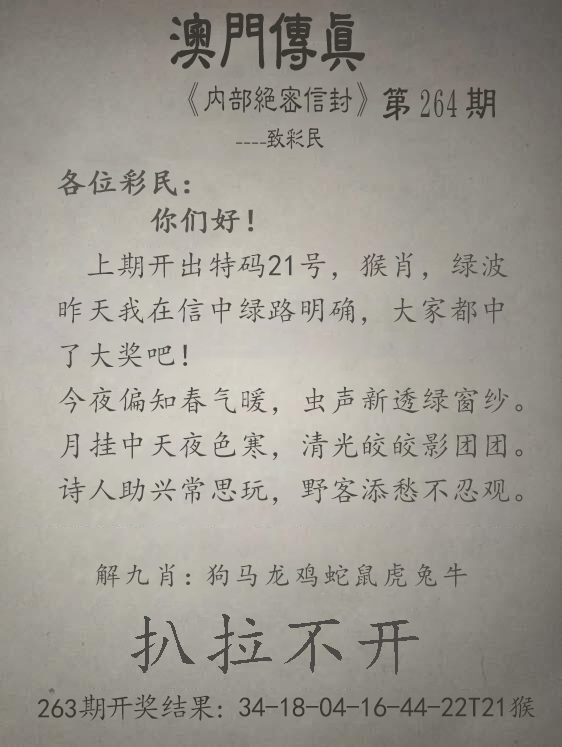 澳門傳眞
《内部絕密信封》第264期
----致彩民
各位彩民：
你们好！
上期开出特码21号，猴肖，绿波
昨天我在信中绿路明确，大家都中
了大奖吧！
今夜偏知春气暖，虫声新透绿窗纱。
月挂中天夜色寒，清光皎皎影团团。
诗人助兴常思玩，野客添愁不忍观。
解九肖：狗马龙鸡蛇鼠虎兔牛
扒拉不开
263期开奖结果：34-18-04-16-44-22T21猴